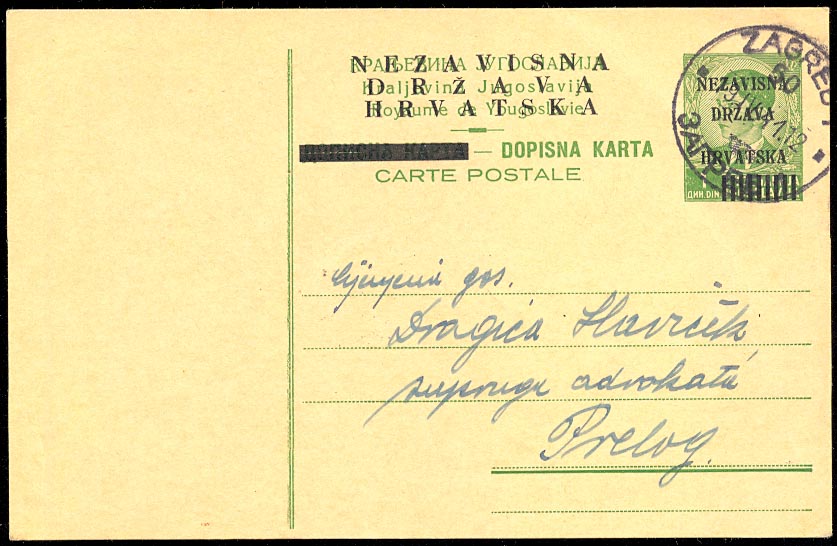 NEZAVISNA
DRŽAVA
HRVATSKA
КРАЉЕВИНА ЈУГОСЛАВИЈА
Kraljevina Jugoslavija
Royaume de Yougoslavie
ДОПИСНА КАРТА — DOPISNA KARTA
CARTE POSTALE
NEZAVISNA
DRŽAVA
HRVATSKA
ДИН. DIN
ZAGREB 1
Cijenjena gos.
Dragica
supruga advokata
Prelog.